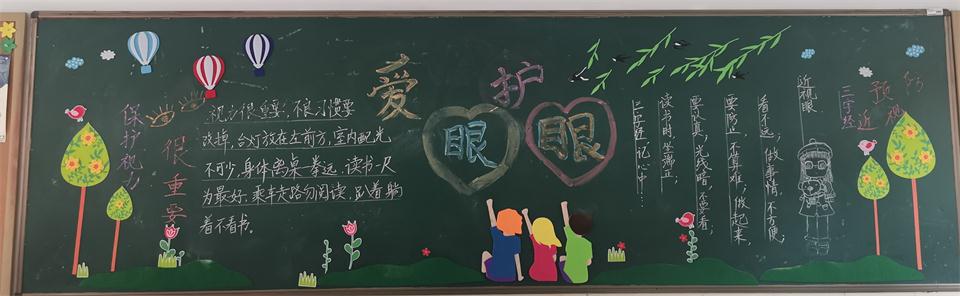 爱护
眼眼
保护视力
很重要
视力很重要，不良习惯要
改掉，台灯放在左前方，室内配光
不可少，身体离桌一拳远，读书一尺
为最好，乘车走路勿阅读，趴着躺
着不看书。
预防
近视
三字经
近视眼
看不远；做事情，不方便，
要防止，不算难；做起来，
要认真；光线暗，不要看；
读书时，坐端正；
三字经，记心中……